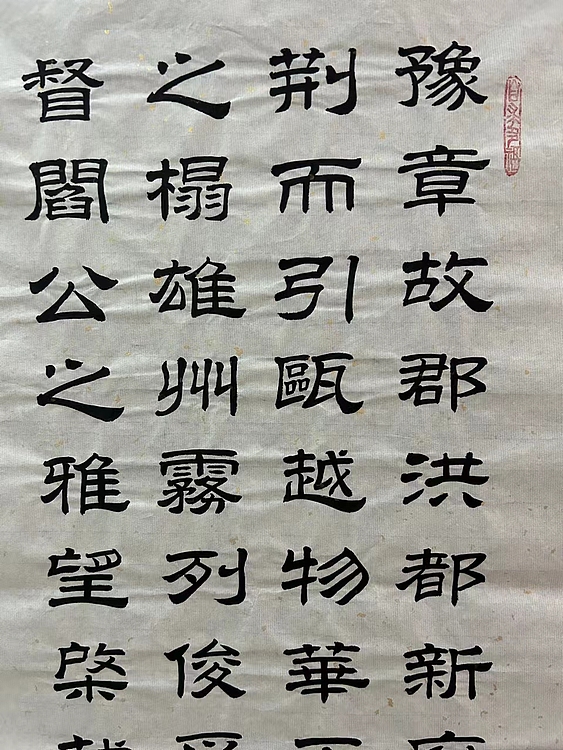 豫章故郡洪都新
荆而引甌越物華
之榻雄州霧列俊
督閻公之雅望棨